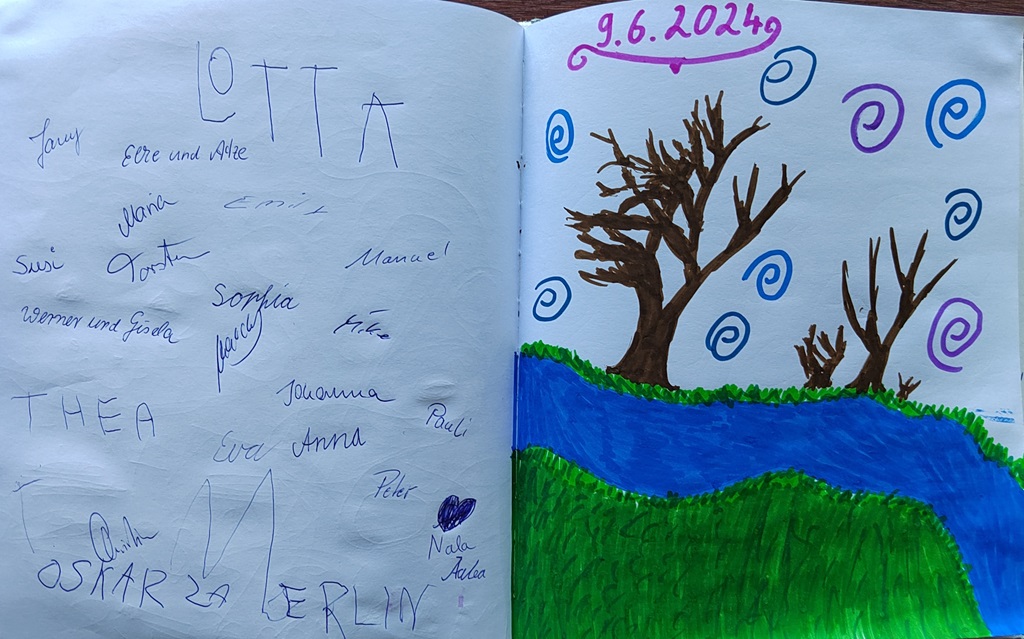 LOTTA
Elke und Atze
Maria
Emily
Susi
Torsten
Manuel
Sophia
Werner und Gisela
Mike
Johanna
THEA
Pauli
Eva
Anna
Peter
Nala
OSKAR
MERLIN
9.6.2024